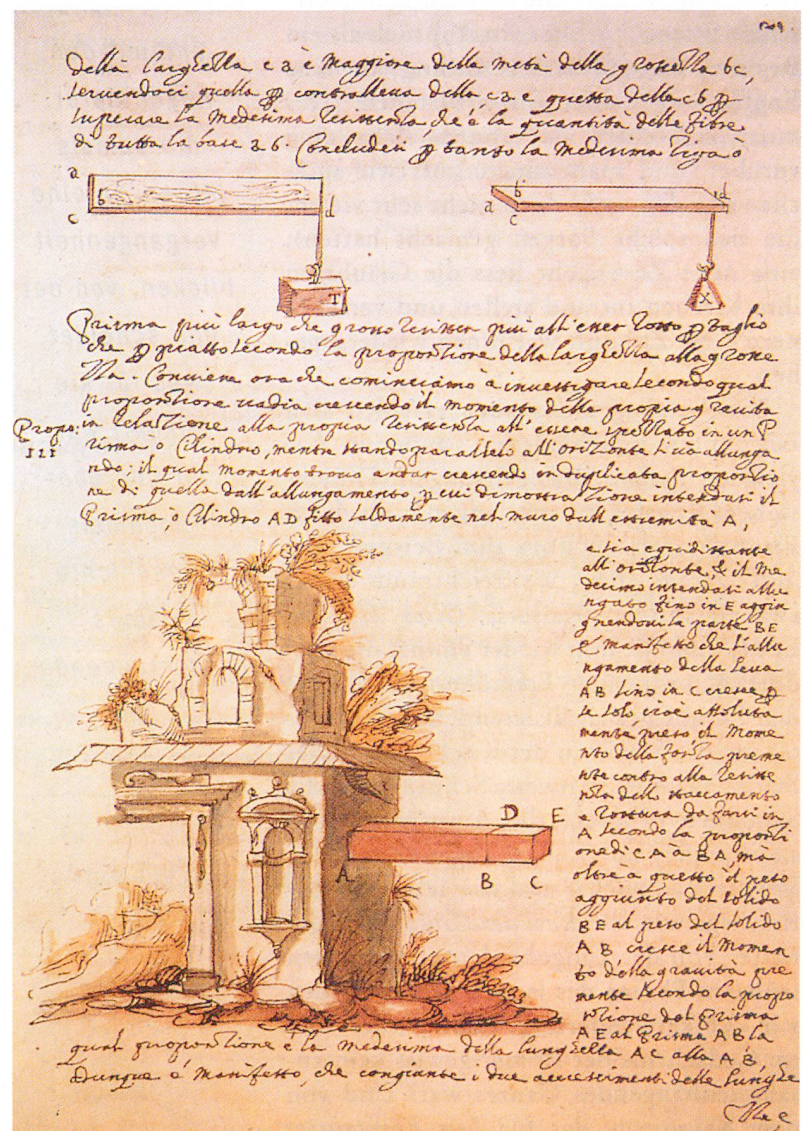 209
della larghezza ca è Maggiore della metà della grossezza bc,
servendoci quella p contralleva della ca e questa della cb p
superare la medesima resistenza, che è la quantità delle fibre
di tutta la base ab. Concludesi p tanto la medesima riga ò
a
b
c
d
T
b
a
c
d
X
Prisma più largo che grosso resister più all'esser rotto p taglio
che p piatto secondo la proportione della larghezza alla grosse
zza. Conviene ora che cominciamo à investigare secondo qual
proportione vadia crescendo il momento della propia gravita
Propo:
in relatione alla propia resistenza all'essere spezzato in un P
III
risma ò Cilindro, mentre stando parallelo all'orizonte si va allunga
ndo; il qual momento trovo andar crescendo in duplicata proportio
ne di quella dall'allungamento, p cui dimostrazione intendasi il
Prisma, ò Cilindro AD fitto saldamente nel muro dall'estremità A,
e sia equidistante
all'orizonte, & il Me
desimo intendasi allu
ngato fino in E aggiu
gnendovi la parte BE
è manifesto che l'allu
ngamento della leva
AB sino in C cresce p
se solo cioè assoluta
mente preso il Mome
nto della forza preme
nte contro alla resiste
nza dello staccamento
e rottura da farsi in
A secondo la proporti
one di CA à BA, mà
oltre à questo il peso
aggiunto del solido
BE al peso del solido
AB cresce il momen
to della gravità pre
mente secondo la propo
rtione del Prisma
AE al Prisma AB la
D
E
A
B
C
qual proportione è la medesima della lunghezza AC alla AB
Dunque è manifesto, che congiunte i due accrescimenti delle lunghe
zze